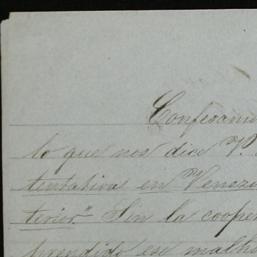 Confesamo
lo que nos dice V.
tentativa en Venezu
terior." Sin la cooper
prendido en malh